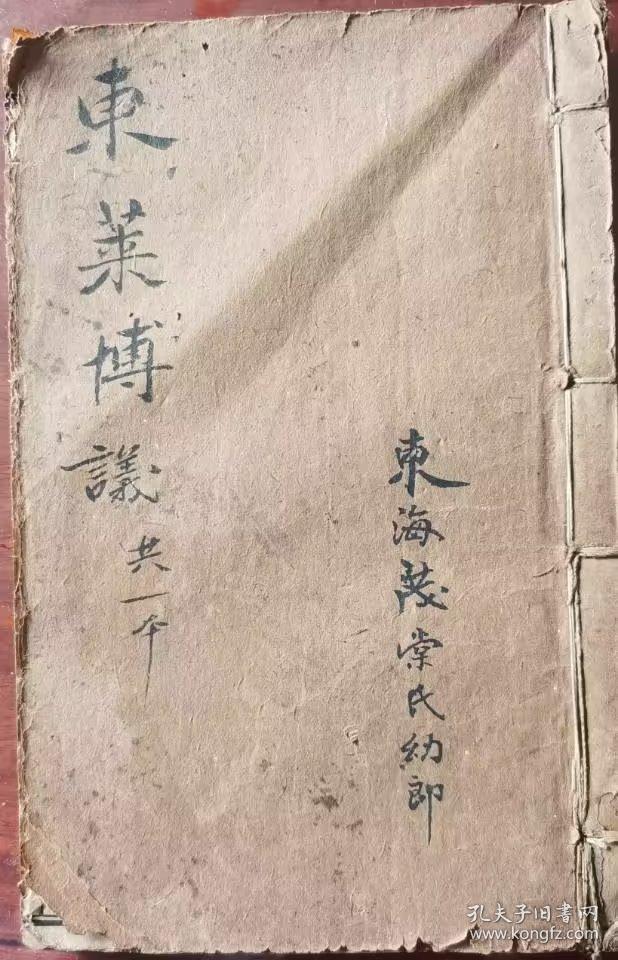 東海茂棠氏幼郎
東莱博議共一本
孔夫子旧书网
www.kongfz.com